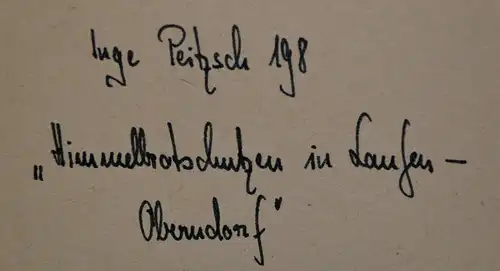 Inge Peitzsch 198
„Himmelbrotschutzen in Laufen-
Oberndorf"